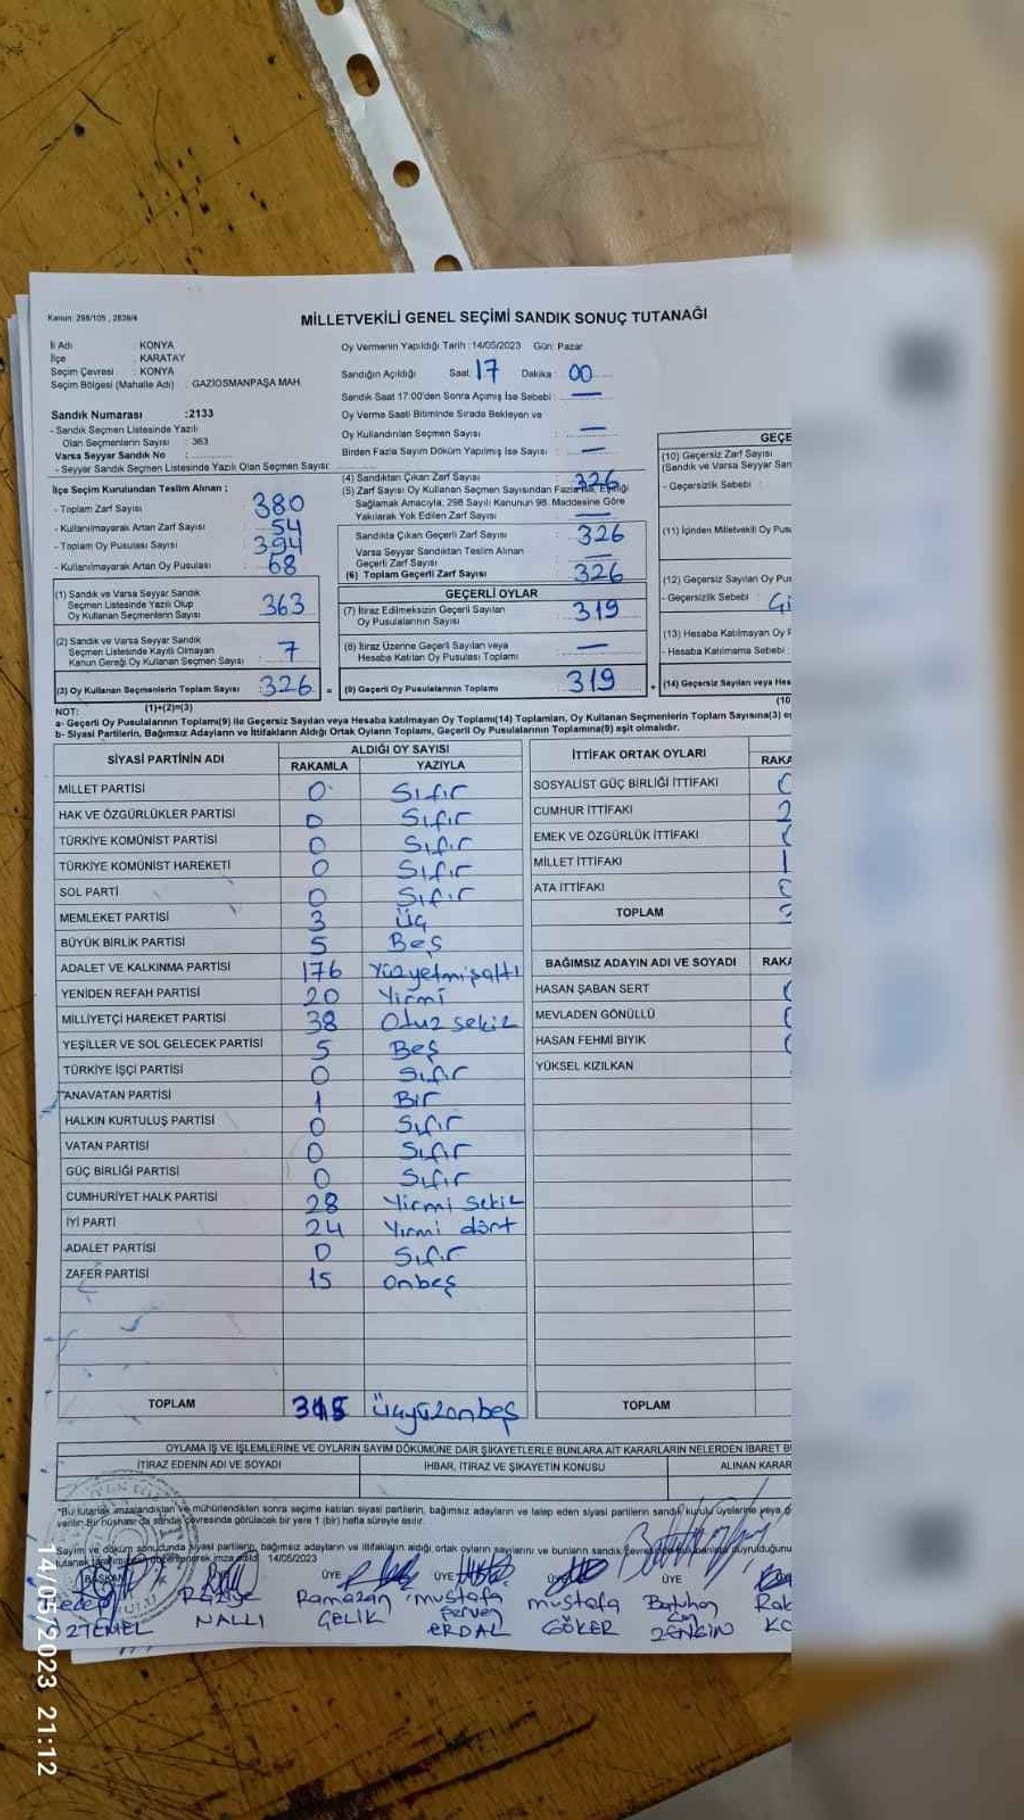 Kanun: 298/105 , 2839/4
MİLLETVEKİLİ GENEL SEÇİMİ SANDIK SONUÇ TUTANAĞI
İl Adı : KONYA
İlçe : KARATAY
Seçim Çevresi : KONYA
Seçim Bölgesi (Mahalle Adı) : GAZİOSMANPAŞA MAH.
Sandık Numarası :2133
- Sandık Seçmen Listesinde Yazılı
Olan Seçmenlerin Sayısı : 363
Varsa Seyyar Sandık No :
- Seyyar Sandık Seçmen Listesinde Yazılı Olan Seçmen Sayısı:
Oy Vermenin Yapıldığı Tarih :14/05/2023 Gün: Pazar
Sandığın Açıldığı Saat: 17 Dakika : 00
Sandık Saat 17.00'den Sonra Açımış İse Sebebi : —
Oy Verme Saati Bitiminde Sırada Bekleyen ve
Oy Kullandırılan Seçmen Sayısı : —
Birden Fazla Sayım Döküm Yapılmış İse Sayısı : —
İlçe Seçim Kurulundan Teslim Alınan ;
- Toplam Zarf Sayısı : 380
- Kullanılmayarak Artan Zarf Sayısı : 54
- Toplam Oy Pusulası Sayısı : 394
- Kullanılmayarak Artan Oy Pusulası : 68
(1) Sandık ve Varsa Seyyar Sandık
Seçmen Listesinde Yazılı Olup
Oy Kullanan Seçmenlerin Sayısı : 363
(2) Sandık ve Varsa Seyyar Sandık
Seçmen Listesinde Kayıtlı Olmayan
Kanun Gereği Oy Kullanan Seçmen Sayısı : 7
(3) Oy Kullanan Seçmenlerin Toplam Sayısı : 326 =
(1)+(2)=(3)
(4) Sandıktan Çıkan Zarf Sayısı : 326
(5) Zarf Sayısı Oy Kullanan Seçmen Sayısından Fazla İse, Eşitliği
Sağlamak Amacıyla, 298 Sayılı Kanunun 98. Maddesine Göre
Yakılarak Yok Edilen Zarf Sayısı : —
Sandıkta Çıkan Geçerli Zarf Sayısı : 326
Varsa Seyyar Sandıktan Teslim Alınan
Geçerli Zarf Sayısı : —
(6) Toplam Geçerli Zarf Sayısı : 326
GEÇERLİ OYLAR
(7) İtiraz Edilmeksizin Geçerli Sayılan
Oy Pusulalarının Sayısı : 319
(8) İtiraz Üzerine Geçerli Sayılan veya
Hesaba Katılan Oy Pusulası Toplamı : —
(9) Geçerli Oy Pusulalarının Toplamı : 319 +
GEÇE
(10) Geçersiz Zarf Sayısı
(Sandık ve Varsa Seyyar San
- Geçersizlik Sebebi :
(11) İçinden Milletvekili Oy Pus
(12) Geçersiz Sayılan Oy Pu
- Geçersizlik Sebebi :
(13) Hesaba Katılmayan Oy P
- Hesaba Katılmama Sebebi :
(14) Geçersiz Sayılan veya Hes
(10
NOT:
a- Geçerli Oy Pusulalarının Toplamı(9) ile Geçersiz Sayılan veya Hesaba katılmayan Oy Toplamı(14) Toplamları, Oy Kullanan Seçmenlerin Toplam Sayısına(3) e
b- Siyasi Partilerin, Bağımsız Adayların ve İttifakların Aldığı Ortak Oyların Toplamı, Geçerli Oy Pusulalarının Toplamına(9) eşit olmalıdır.
SİYASİ PARTİNİN ADI ALDIĞI OY SAYISI
RAKAMLA YAZIYLA
MİLLET PARTİSİ 0 Sıfır
HAK VE ÖZGÜRLÜKLER PARTİSİ 0 Sıfır
TÜRKİYE KOMÜNİST PARTİSİ 0 Sıfır
TÜRKİYE KOMÜNİST HAREKETİ 0 Sıfır
SOL PARTİ 0 Sıfır
MEMLEKET PARTİSİ 3 Üç
BÜYÜK BİRLİK PARTİSİ 5 Beş
ADALET VE KALKINMA PARTİSİ 176 Yüzyetmişaltı
YENİDEN REFAH PARTİSİ 20 Yirmi
MİLLİYETÇİ HAREKET PARTİSİ 38 Otuz sekiz
YEŞİLLER VE SOL GELECEK PARTİSİ 5 Beş
TÜRKİYE İŞÇİ PARTİSİ 0 Sıfır
ANAVATAN PARTİSİ 1 Bir
HALKIN KURTULUŞ PARTİSİ 0 Sıfır
VATAN PARTİSİ 0 Sıfır
GÜÇ BİRLİĞİ PARTİSİ 0 Sıfır
CUMHURİYET HALK PARTİSİ 28 Yirmi sekiz
İYİ PARTİ 24 Yirmi dört
ADALET PARTİSİ 0 Sıfır
ZAFER PARTİSİ 15 Onbeş
TOPLAM 315 Üçyüzonbeş
İTTİFAK ORTAK OYLARI RAKA
SOSYALİST GÜÇ BİRLİĞİ İTTİFAKI 0
CUMHUR İTTİFAKI 2
EMEK VE ÖZGÜRLÜK İTTİFAKI
MİLLET İTTİFAKI 1
ATA İTTİFAKI 0
TOPLAM 3
BAĞIMSIZ ADAYIN ADI VE SOYADI RAKA
HASAN ŞABAN SERT
MEVLADEN GÖNÜLLÜ
HASAN FEHMİ BIYIK
YÜKSEL KIZILKAN
TOPLAM
OYLAMA İŞ VE İŞLEMLERİNE VE OYLARIN SAYIM DÖKÜMÜNE DAİR ŞİKAYETLERLE BUNLARA AİT KARARLARIN NELERDEN İBARET B
İTİRAZ EDENİN ADI VE SOYADI İHBAR, İTİRAZ VE ŞİKAYETİN KONUSU ALINAN KARAR
"Bu tutanak imzalandıktan ve mühürlendikten sonra seçime katılan siyasi partilerin, bağımsız adayların ve talep eden siyasi partilerin sandık kurulu üyelerine veya
verilir. Bir nüshası da sandık çevresinde görülecek bir yere 1 (bir) hafta süreyle asılır.
Sayım ve döküm sonucunda siyasi partilerin, bağımsız adayların ve ittifakların aldığı ortak oyların sayılarını ve bunların sandık çevresi
tutanak tarafımızca düzenlenerek imza edildi. 14/05/2023
BAŞKAN ÜYE ÜYE ÜYE ÜYE
Recep Raziye Ramazan Mustafa Mustafa Batuhan Rak
ÖZTEMEL NALLI ÇELİK Şerven ERDAL GÖKER Can ZENGİN KO
14/05/2023 21:12